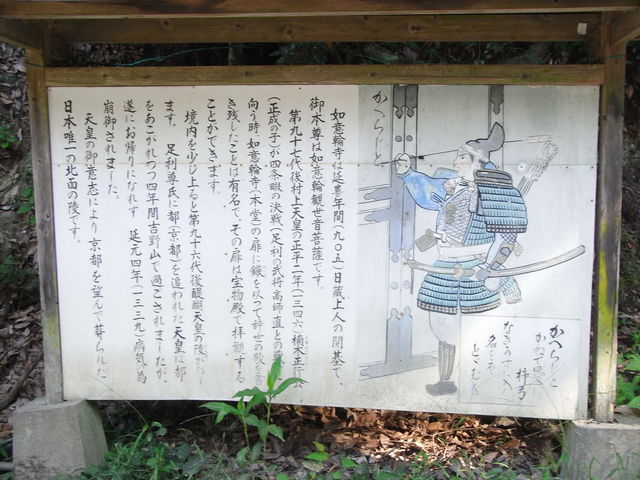 如意輪寺は延喜年間(九〇五)日蔵上人の開基で、
御本尊は如意輪観世音菩薩です。
第九十七代後村上天皇の正平二年(一三四六)楠木正行
(正成の子)が四条畷の決戦(足利の武将高師直との
向う時、如意輪寺(本堂)の扉に鏃を以って辞世の歌を
き残したことは有名で、その扉は宝物殿で拝観する
ことができます。
境内を少し上ると第九十六代後醍醐天皇の陵があり
ます。足利尊氏に都(京都)を追われた天皇は都
をあこがれつつ四年間吉野山で過ごされましたが、
遂にお帰りになれず延元四年(一三三九)病気の為
崩御されました。
天皇の御意志により京都を望んで葬られた
日本唯一の北面の陵です。
かへらじと
かへらじと
かねて思へば
梓弓
なき数に入る
名をぞ
とゞむる